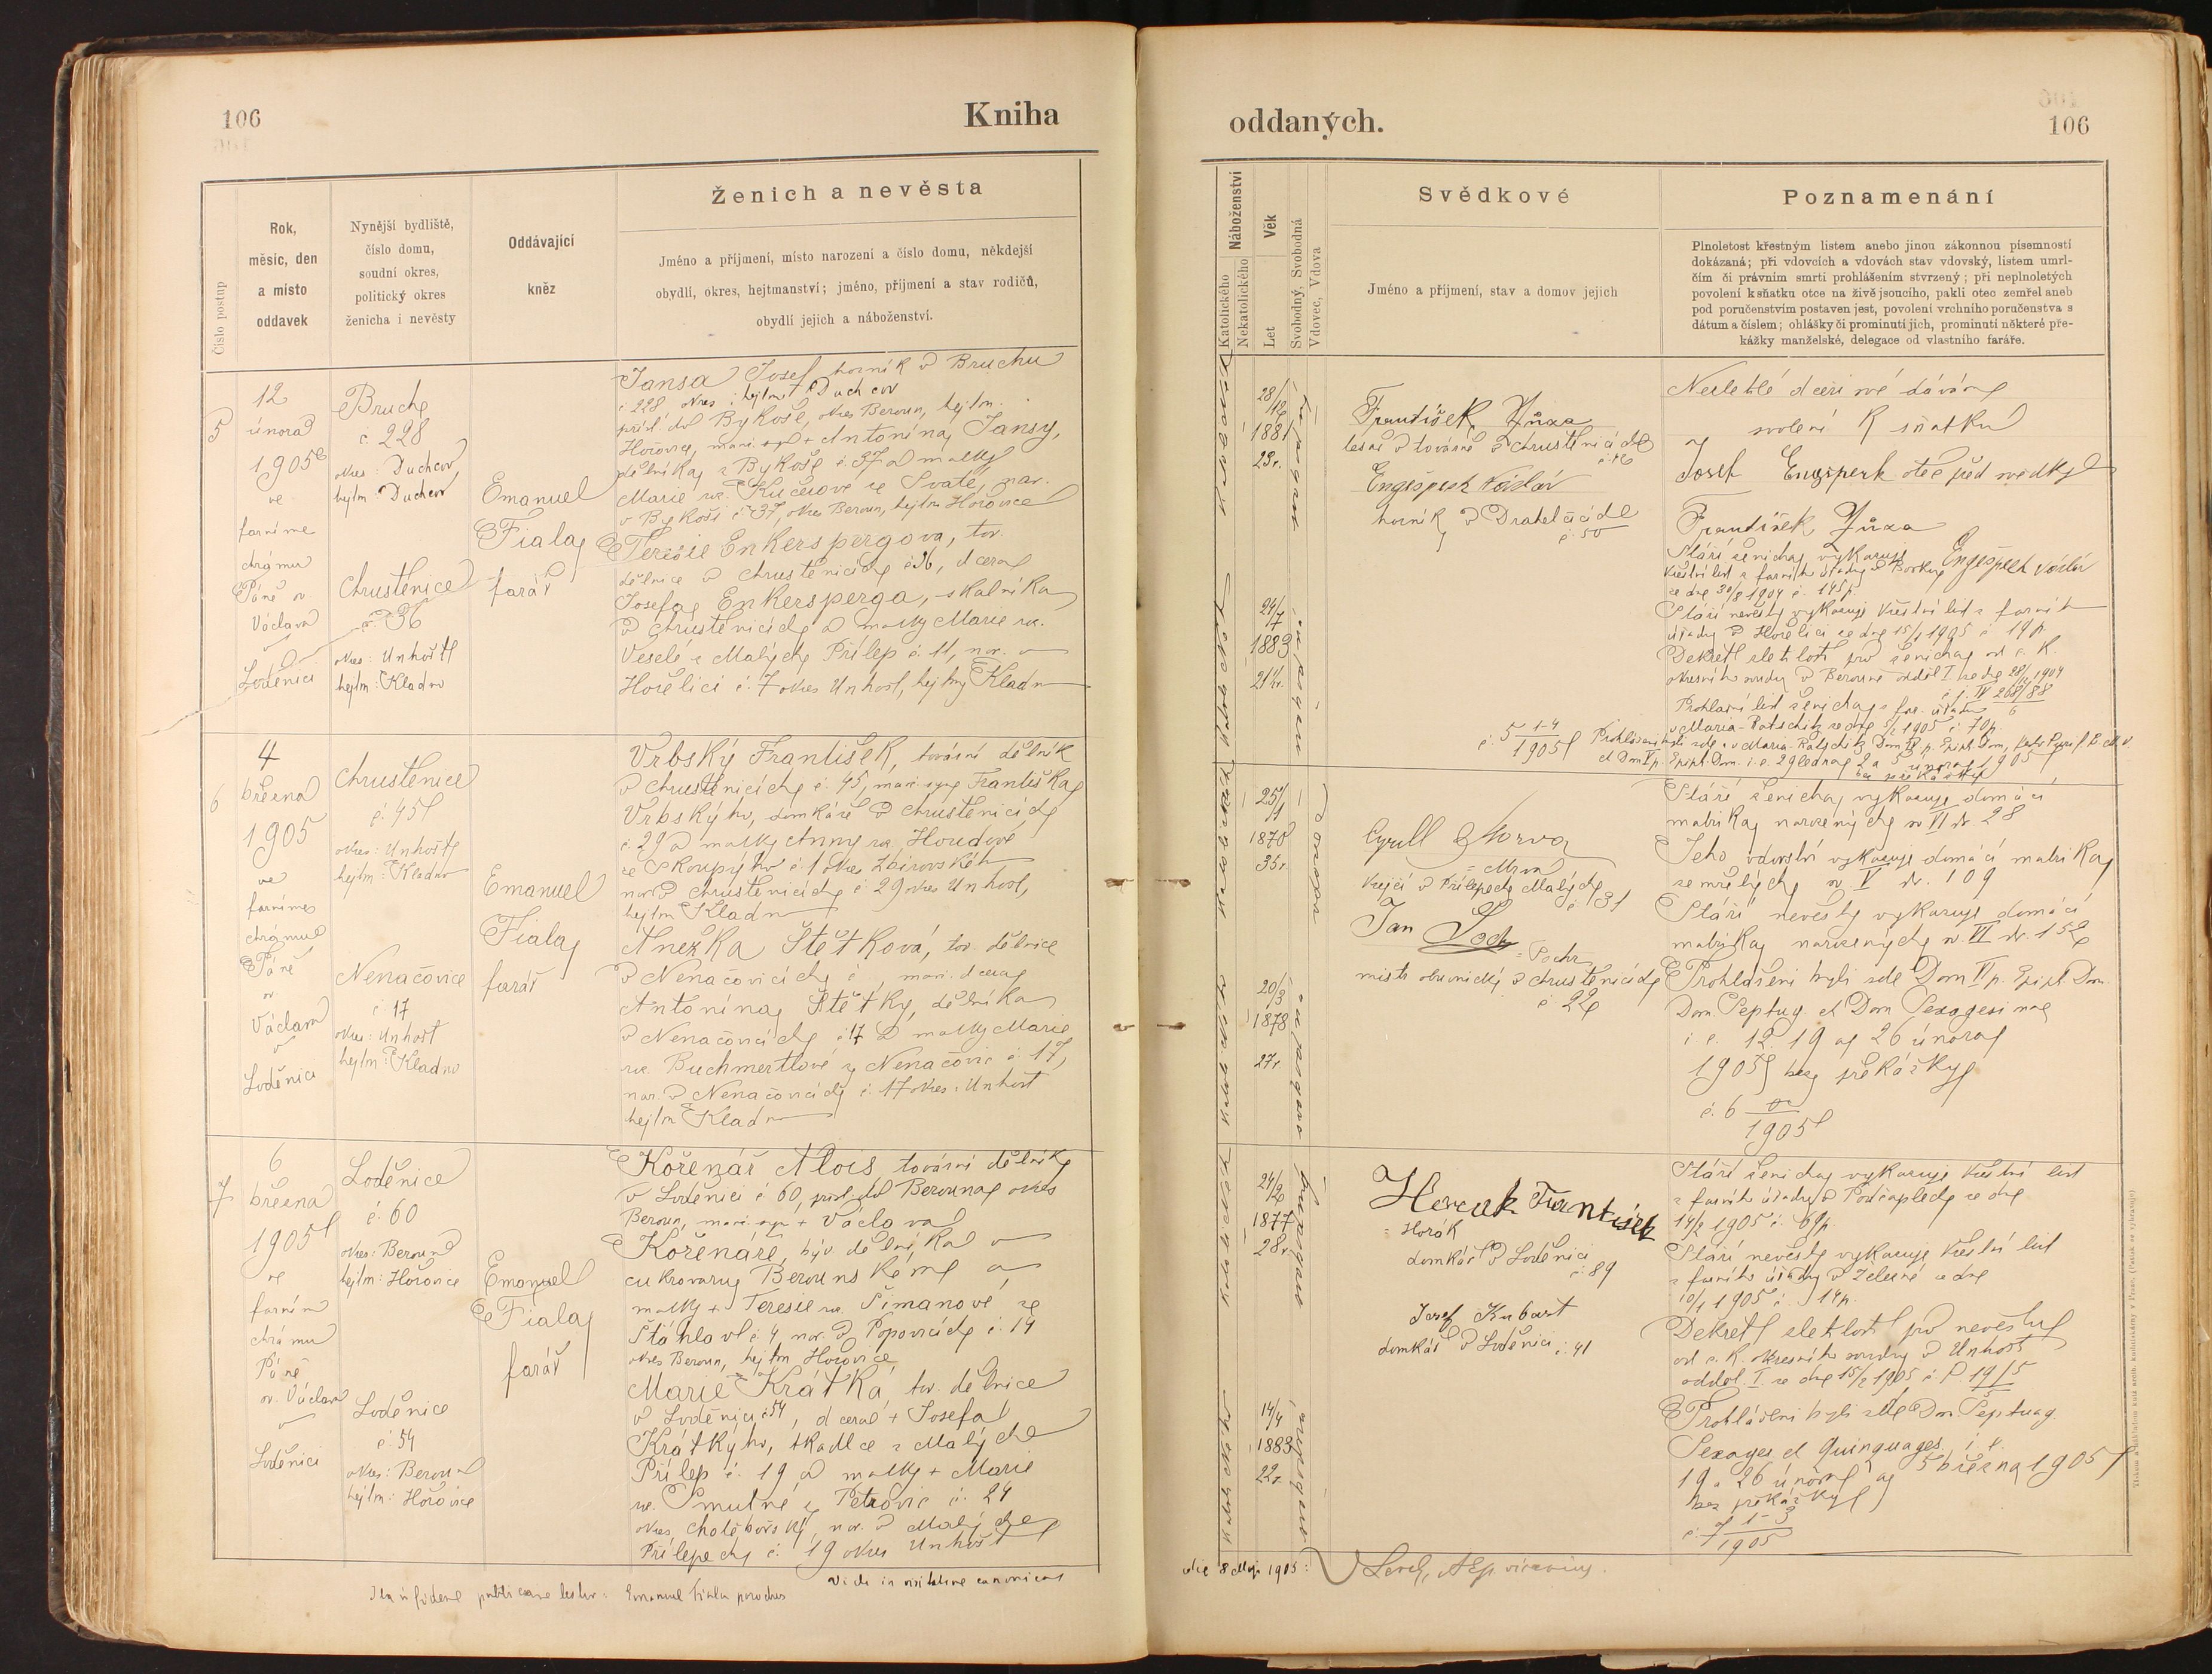 106
Kniha
Číslo postup
Rok,
měsíc, den
a místo
oddavek
Nynější bydliště,
číslo domu,
soudní okres,
politický okres
ženicha i nevěsty
Oddávající
kněz
Ženich a nevěsta
Jméno a příjmení, místo narození a číslo domu, někdejší
obydlí, okres, hejtmanství; jméno, příjmení a stav rodičů,
obydlí jejich a náboženství.
5
12
února
1905
ve
farním
chrámu
Páně sv.
Václava
v
Loděnici
Bruch
č. 228
okres: Duchcov
hejtm: Duchcov
Chrustenice
č. 36
okres: Unhošť
hejtm: Kladno
Emanuel
Fiala
farář
Jansa Josef, horník v Bruchu
č 228 okres i hejtm Duchcov
přísl. do Bykoše, okres Beroun, hejtm.
Hořovice, man. syn + Antonína Jansy,
dělníka z Bykoše č 37 a matky
Marie roz. Kučerové ze Svaté, nar.
v Bykoši č 37, okres Beroun, hejtm Hořovice
Terezie Enkerspergova, tov.
dělnice v Chrustenicích č 36, dcera
Josefa Enkersperga, skalníka
v Chrustenicích a matky Marie roz.
Veselé z Malých Přílep č. 11, nar. v
Hořelici č. 7 okres Unhošť, hejtm Kladno
6
4
března
1905
ve
farním
chrámu
Páně
sv
Václava
v
Loděnici
Chrustenice
č. 45
okres: Unhošť
hejtm: Kladno
Nenačovice
č. 17
okres: Unhošť
hejtm: Kladno
Emanuel
Fiala
farář
Vrbský František, tovární dělník
v Chrustenicích č. 45, man. syn Františka
Vrbského, domkáře v Chrustenicích
č 29 a matky Anny roz. Houdové
ze Skoupýho č. 1 okres Zbirovského
nar. v Chrustenicích č. 29 okres Unhošť,
hejtm Kladno
Anežka Štětková, tov. dělnice
v Nenačovicích č , man. dcera
Antonína Štětky, dělníka
v Nenačovicích č 17 a matky Marie
roz. Buchmertlové z Nenačovic č. 17,
nar. v Nenačovicích č. 17 okres: Unhošť
hejtm Kladno
7
6
března
1905
ve
farním
chrámu
Páně
sv. Václava
v
Loděnici
Loděnice
č. 60
okres: Beroun
hejtm: Hořovice
Loděnice
č. 54
okres: Beroun
hejtm: Hořovice
Emanuel
Fiala
farář
Kořenář Alois, tovární dělník
v Loděnici č 60, přísl. do Berouna okres
Beroun, man. syn + Václava
Kořenáře, býv. dělníka v
cukrovaru Berounském a
matky + Teresie roz. Šimanové ze
Štáhlav č. 4, nar. v Popovicích č. 14
okres Beroun, hejtm Hořovice
Marie Krátká, tov. dělnice
v Loděnici č 54, dcera + Josefa
Krátkýho, tkadlce z Malých
Přílep č. 19 a matky + Marie
roz. Smutné z Petrovic č. 24
okres chotěbořský, nar. v Malých
Přílepech č. 19 okres Unhošť
publicatae testor: Emanuel Fiala parochus
Vidi in visitatione canonica
oddaných.
106
Náboženství
Katolického
Nekatolického
Věk
Let
Svobodný, Svobodná
Vdovec, Vdova
Svědkové
Jméno a příjmení, stav a domov jejich
Poznamenání
Plnoletost křestným listem anebo jinou zákonnou písemností
dokázaná; při vdovcích a vdovách stav vdovský, listem umrl-
čím či právním smrti prohlášením stvrzený; při neplnoletých
povolení k sňatku otce na živě jsoucího, pakli otec zemřel aneb
pod poručenstvím postaven jest, povolení vrchního poručenstva s
dátum a číslem; ohlášky či prominutí jich, prominutí některé pře-
kážky manželské, delegace od vlastního faráře.
Katolického
28/12
1881
23r.
František Jůza
v továrně v Chrustenicích
Engešperk Václav
horník v Drahelčicích
č. 50
Nezletilé dceři své dávám
svolení k sňatku
Josef Engšperk otec před svědky
František Jůza
Engešperk Václav
Stáří ženicha vykazuje
křestní list z farního úřadu
ze dne 30/8 1904 č. 145
Stáří nevěsty vykazuje křestní list z farního
úřadu v Hořelici ze dne 15/1 1905 č 14
Dekret zletilosti pro ženicha od c. k.
okresního soudu v Berouně odděl I ze dne 28/12 1904
Prohlášní list ženicha z far. úřadu
v Maria-Ratschitz ze dne 5/2 1905 č. 70
č. 5 1-4/1905
Katolického
24/7
1883
21 1/2r.
Katolického
25/1
1870
35r.
vdovec
Cyrill Mrva
= Mrva
krejčí v Přílepech Malých
č 31
Jan Poch
= Pochr
mistr obuvnický v Chrustenicích
č 22
Stáří ženicha vykazuje domácí
matrika narozených sv VI str. 28
Jeho vdovství vykazuje domácí matrika
zemřelých sv. V str. 109
Stáří nevěsty vykazuje domácí
matrika narozených sv. VI str. 152
Prohlášeni byli zde Dom V p. Epiph. Dom.
Dom Septuag. et Dom Sexagesimae
i. e. 12. 19 a 26 února
1905 bez překážky
č. 6
1905
Katolického
20/3
1878
27r
Katolického
24/2
1877
28r
Horak František
= Horák
domkář v Loděnici
č 89
Josef Kubart
domkář v Loděnici č. 41
Stáří ženicha vykazuje křestní list
z farního úřadu v Počaplech ze dne
14/2 1905 č. 69
Stáří nevěsty vykazuje křestní list
z farního úřadu v Železné ze dne
10/1 1905 č. 14
Dekret zletilosti pro nevěstu
od c. k. okresního soudu v Unhošti
odděl. I. ze dne 15/2 1905 č P. 19/5
Prohlášeni byli zde Dom Septuag.
Sexages et Quinquages. i. e.
19 a 26 února a 5 března 1905
bez překážky
č. 7 1-3/1905
Katolického
14/4
1883
22r
die 8 Maji 1905: